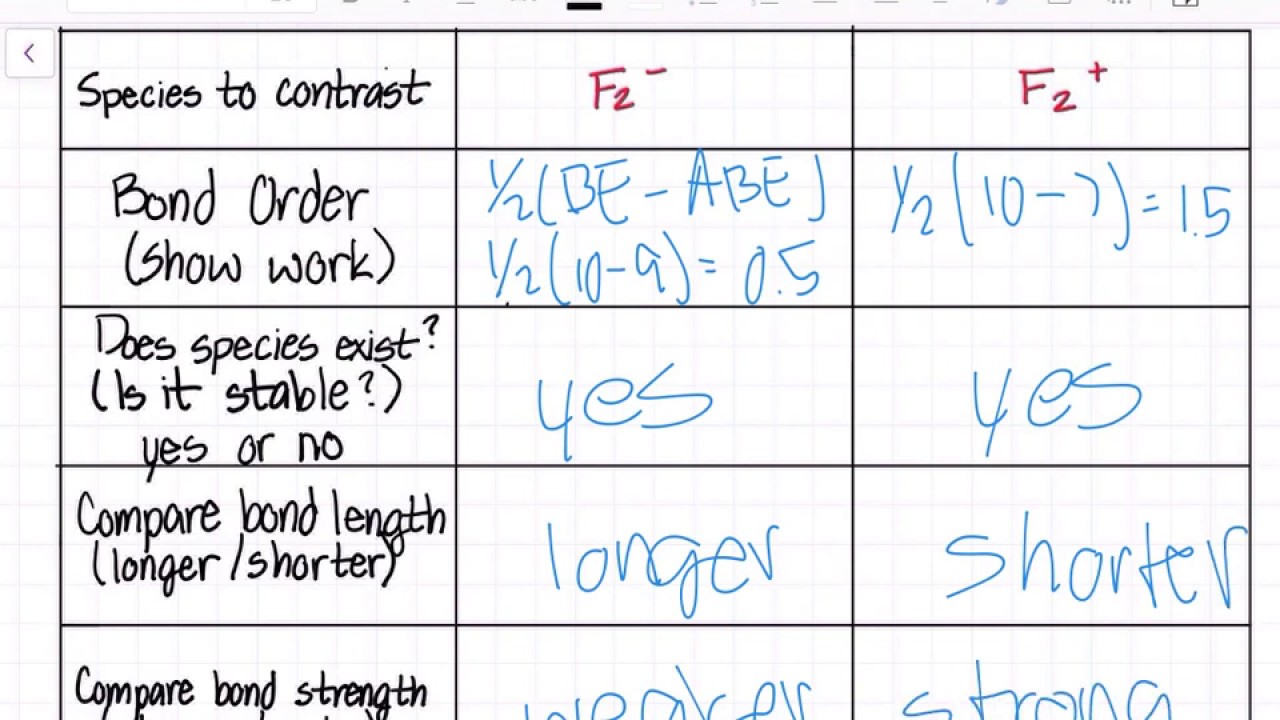 Species to contrast
F₂⁻
F₂⁺
Bond Order
(show work)
½(BE - ABE)
½(10-9) = 0.5
½(10-7) = 1.5
Does species exist?
(Is it stable?)
yes or no
yes
yes
Compare bond length
(longer/shorter)
longer
shorter
Compare bond strength
weaker